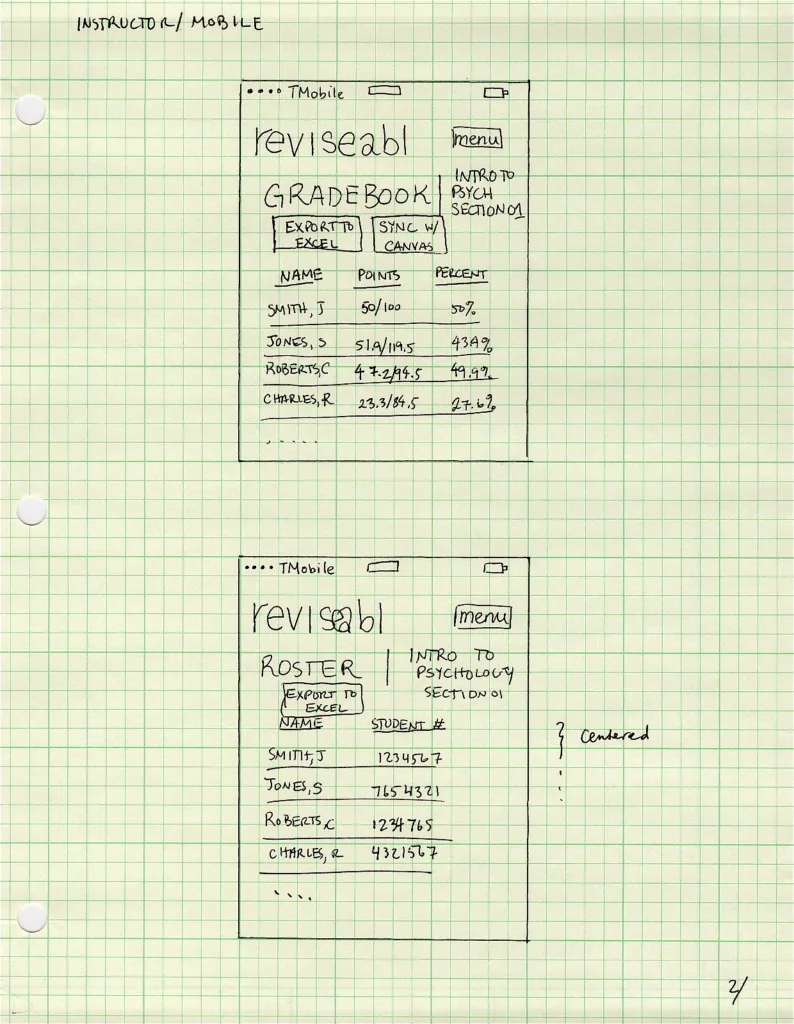 INSTRUCTOR/ MOBILE
•••• TMobile
reviseabl
menu
GRADEBOOK
INTRO TO
PSYCH
SECTION 01
EXPORT TO
EXCEL
SYNC W/
CANVAS
NAME POINTS PERCENT
SMITH, J 50/100 50%
JONES, S 51.9/119.5 43.4%
ROBERTS, C 47.2/94.5 49.9%
CHARLES, R 23.3/84.5 27.6%
. . . . .
•••• TMobile
reviseabl
menu
ROSTER
INTRO TO
PSYCHOLOGY
SECTION 01
EXPORT TO
EXCEL
NAME STUDENT #
} Centered
SMITH, J 1234567
JONES, S 7654321
ROBERTS, C 1234765
CHARLES, R 4321567
. . . .
2/